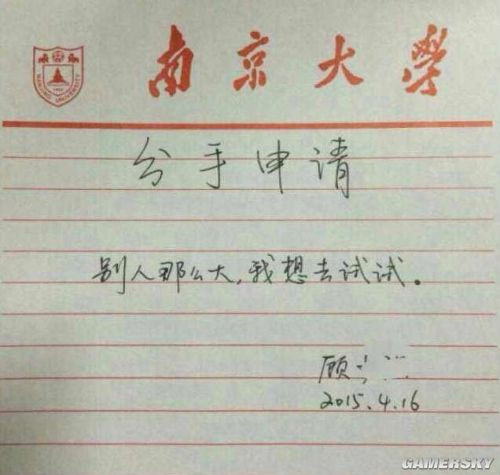 南京大學
分手申请
别人那么大,我想去试试。
顾
2015.4.16
GAMERSKY